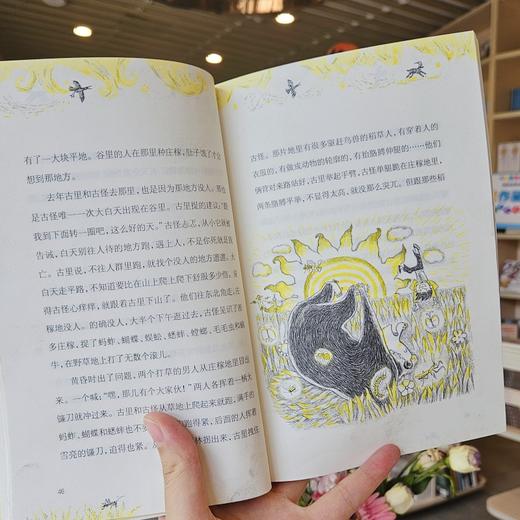 有了一大块平地。谷里的人在那里种庄稼，肚子饿了才会
想到那地方。
去年古里和古怪去那里，也是因为那地方没人。那也
是古怪唯一一次大白天出现在谷里。古里提的建议：“跟
我到下面转一圈吧，这么好的天。”古怪忐忑，从小它就被
告诫，白天别往人待的地方跑，遇上人，不是你死就是我
亡。古里说，不往人群里跑，就找个没人的地方遛遛。大
白天走平路，不知道要比在山上爬上爬下舒服多少倍。
得古怪心痒痒，就跟着古里下山了。他们往东北角走，
稼地没人。的确没人，大半个下午逛过去，古怪见识了
多庄稼，捉了蚂蚱、蝴蝶、蜈蚣、蟋蟀、螳螂、毛毛虫和蜗
牛，在野草地上打了无数个滚儿。
黄昏时出了问题，两个打草的男人从庄稼地里冒出
来。一个喊：“嘿，那儿有个大家伙！”两人各挥着一柄大
镰刀就冲过来。古里和古怪从草地上爬起来就跑，满手的
蚂蚱、蝴蝶和蟋蟀也不
跑得紧，后面的人挥着
雪亮的镰刀，追得也紧。
林拐出来，古里拽住
46
古怪。那片地里有很多驱赶鸟兽的稻草人，有穿着人的
衣服的，有做成动物的轮廓的，有抬胳膊伸腿的……他们
俩背对来路站好，古里举起手臂，古怪单腿跪在庄稼地里，
两条胳膊平举，不显得太高，就没那么突兀。但跟那些